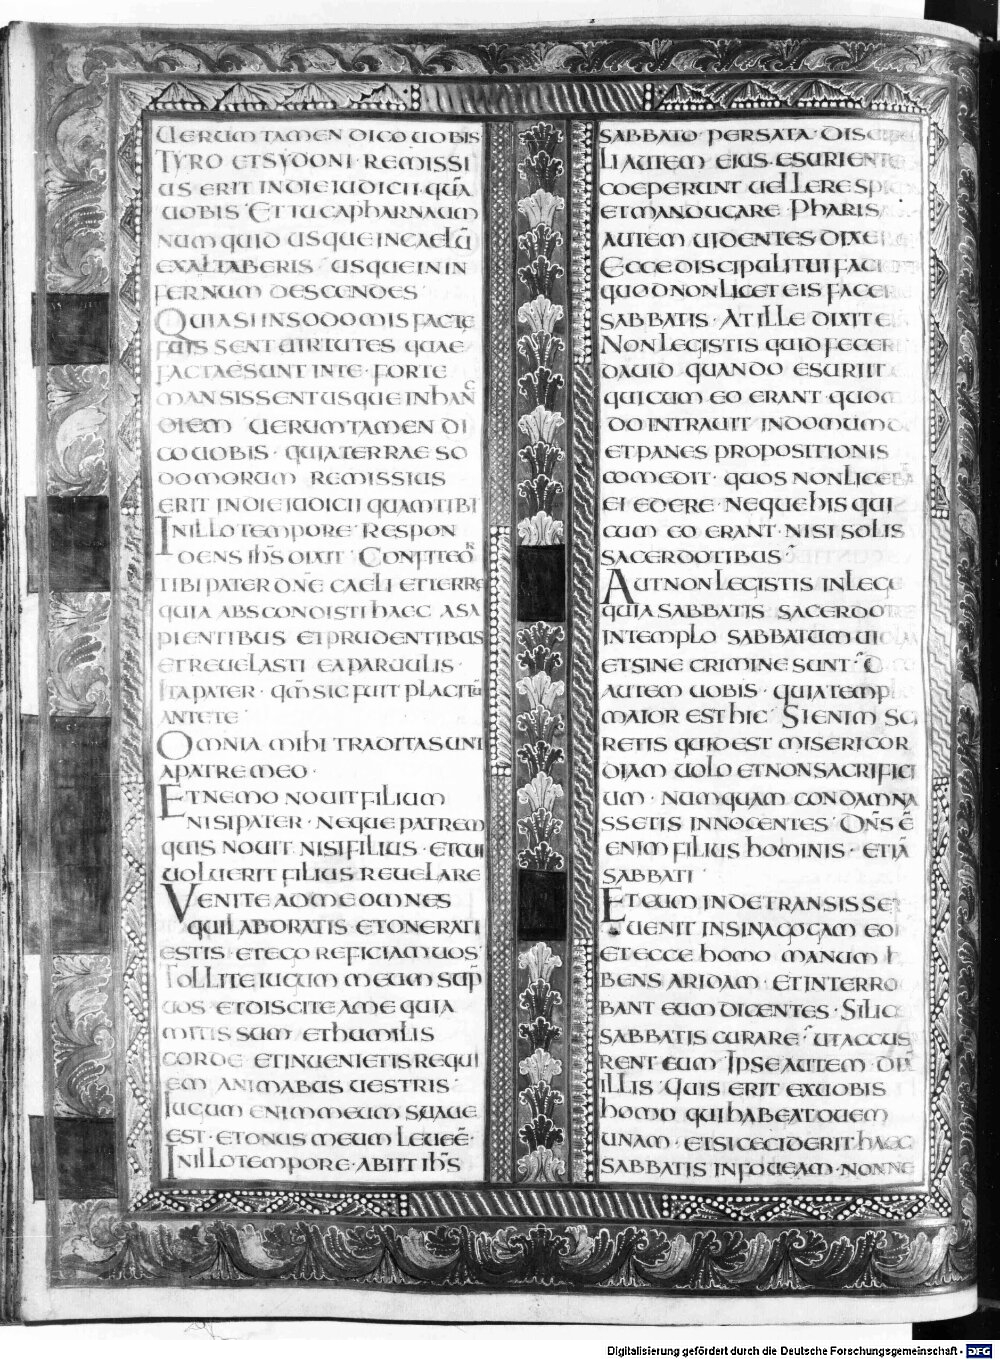 UERUM TAMEN DICO UOBIS·
TYRO ET SYDONI· REMISSI
US ERIT IN DIE IUDICII· QUĀ
UOBIS· ET TU CAPHARNAUM
NUMQUID USQUE IN CAELŪ
EXALTABERIS· USQUE IN IN
FERNUM DESCENDES·
QUIA SI IN SODOMIS FACTE
FUISSENT UIRTUTES QUAE
FACTAE SUNT IN TE· FORTE
MANSISSENT USQUE IN HANC
DIEM UERUM TAMEN DI
CO UOBIS· QUIA TERRAE SO
DOMORUM REMISSIUS
ERIT IN DIE IUDICII QUAM TIBI
IN ILLO TEMPORE RESPON
DENS IH̄S DIXIT· CONFITEOR
TIBI PATER DN̄E CAELI ET TERRE
QUIA ABSCONDISTI HAEC A SA
PIENTIBUS ET PRUDENTIBUS
ET REUELASTI EA PARUULIS·
ITA PATER· QM̄ SIC FUIT PLACITŪ
ANTE TE·
OMNIA MIHI TRADITA SUNT
A PATRE MEO·
ET NEMO NOUIT FILIUM
NISI PATER· NEQUE PATREM
QUIS NOUIT NISI FILIUS· ET CUI
UOLUERIT FILIUS REUELARE
VENITE AD ME OMNES
QUI LABORATIS ET ONERATI
ESTIS· ET EGO REFICIAM UOS·
TOLLITE IUGUM MEUM SUP̄
UOS ET DISCITE A ME QUIA
MITIS SUM ET HUMILIS
CORDE ET INUENIETIS REQUI
EM ANIMABUS UESTRIS·
IUGUM ENIM MEUM SUAUE
EST· ET ONUS MEUM LEUE Ē·
IN ILLO TEMPORE· ABIIT IH̄S
SABBATO· PER SATA· DISCIPU
LI AUTEM EIUS· ESURIENTE
COEPERUNT UELLERE SPICAS
ET MANDUCARE PHARIS
AUTEM UIDENTES DIXE
ECCE DISCIPULI TUI FACI
QUOD NON LICET EIS FACER
SABBATIS· AT ILLE DIXIT EI
NON LEGISTIS QUID FECERI
DAUID QUANDO ESURIIT E
QUI CUM EO ERANT· QUOM
DO INTRAUIT IN DOMUM D
ET PANES PROPOSITIONIS
COMEDIT· QUOS NON LICEBA
EI EDERE· NEQUE HIS QUI
CUM EO ERANT· NISI SOLIS
SACERDOTIBUS·
AUT NON LEGISTIS IN LEGE
QUIA SABBATIS SACERDOTE
IN TEMPLO SABBATUM UIOLA
ET SINE CRIMINE SUNT· D
AUTEM UOBIS· QUIA TEMPL
MAIOR EST HIC· SI ENIM SCI
RETIS QUID EST MISERICOR
DIAM UOLO ET NON SACRIFICI
UM· NUMQUAM CONDAMNA
SSETIS INNOCENTES· DN̄S Ē
ENIM FILIUS HOMINIS· ETIĀ
SABBATI·
ET CUM INDE TRANSISSET
UENIT IN SINAGOGAM EO
ET ECCE HOMO MANUM H
BENS ARIDAM· ET INTERRO
BANT EUM DICENTES· SI LICE
SABBATIS CURARE· UT ACCUS
RENT EUM· IPSE AUTEM DIX
ILLIS· QUIS ERIT EX UOBIS
HOMO QUI HABEAT OUEM
UNAM· ET SI CECIDERIT HAEC
SABBATIS IN FOUEAM· NONNE
Digitalisierung gefördert durch die Deutsche Forschungsgemeinschaft - DFG